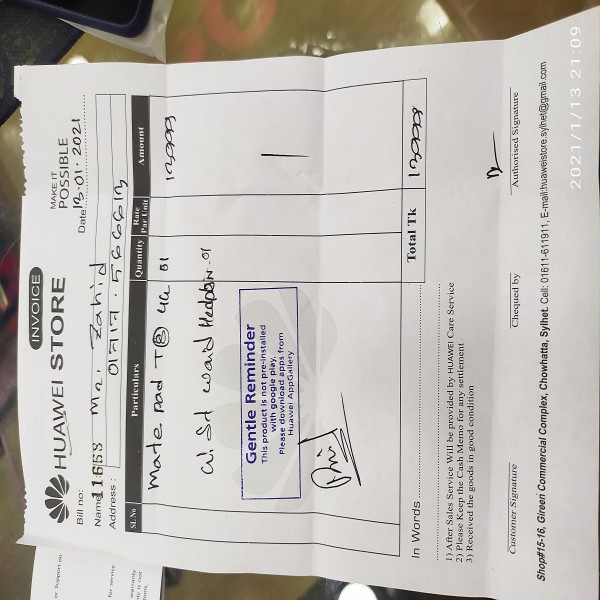 INVOICE
HUAWEI STORE
MAKE IT
POSSIBLE
Bill no:
11658
Date 13.01.2021
Name Mr. Zahid
Address :
SL.No Particulars Quantity Rate Per Unit Amount
Mate pad T 01
01
Gentle Reminder
This product is not pre-installed
with google play,
Please download apps from
Huawei AppGallery
Total Tk
In Words
1) After Sales Service Will be provided by HUAWEI Care Service
2) Please Keep the Cash Memo for any settlement
3) Received the goods in good condition
Customer Signature Chequed by Authorised Signature
Shop#15-16, Gireen Commercial Complex, Chowhatta, Sylhet. Cell: 01611-611911, E-mail:huaweistore.sylhet@gmail.com
2021/1/13 21:09